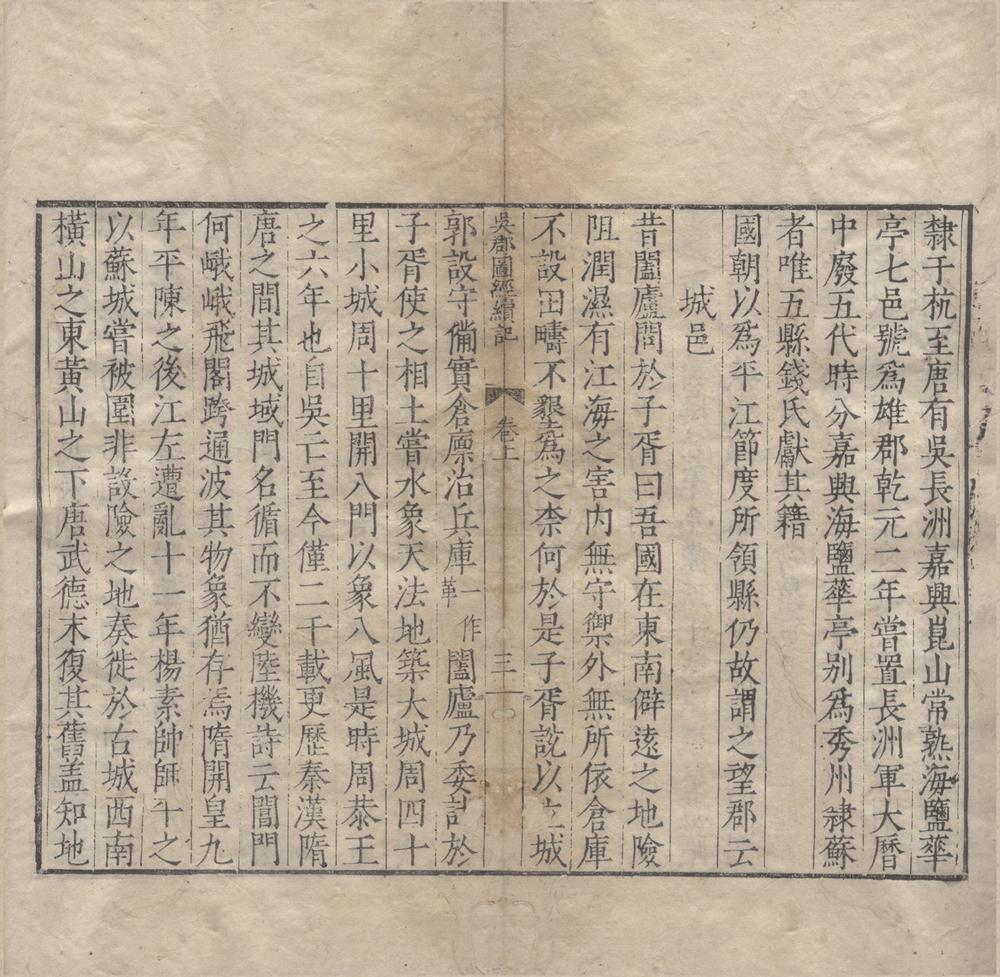 隸于杭至唐有吳長洲嘉興崑山常熟海鹽華
亭七邑號爲雄郡乾元二年嘗置長洲軍大曆
中廢五代時分嘉興海鹽華亭別爲秀州隸蘇
者唯五縣錢氏獻其籍
國朝以爲平江節度所領縣仍故謂之望郡云
城邑
昔闔廬問於子胥曰吾國在東南僻遠之地險
阻潤濕有江海之害内無守禦外無所依倉庫
不設田疇不墾爲之柰何於是子胥說以立城
吳郡圖經續記 卷上 三
郭設守備實倉廪治兵庫一作革闔廬乃委計於
子胥使之相土嘗水象天法地築大城周四十
里小城周十里開八門以象八風是時周恭王
之六年也自吳亡至今僅二千載更歷秦漢隋
唐之間其城域門名循而不變陸機詩云閶門
何峨峨飛閣跨通波其物象猶存焉隋開皇九
年平陳之後江左遭亂十一年楊素帥師平之
以蘇城嘗被圍非設險之地奏徙於古城西南
橫山之東黃山之下唐武德末復其舊盖知地